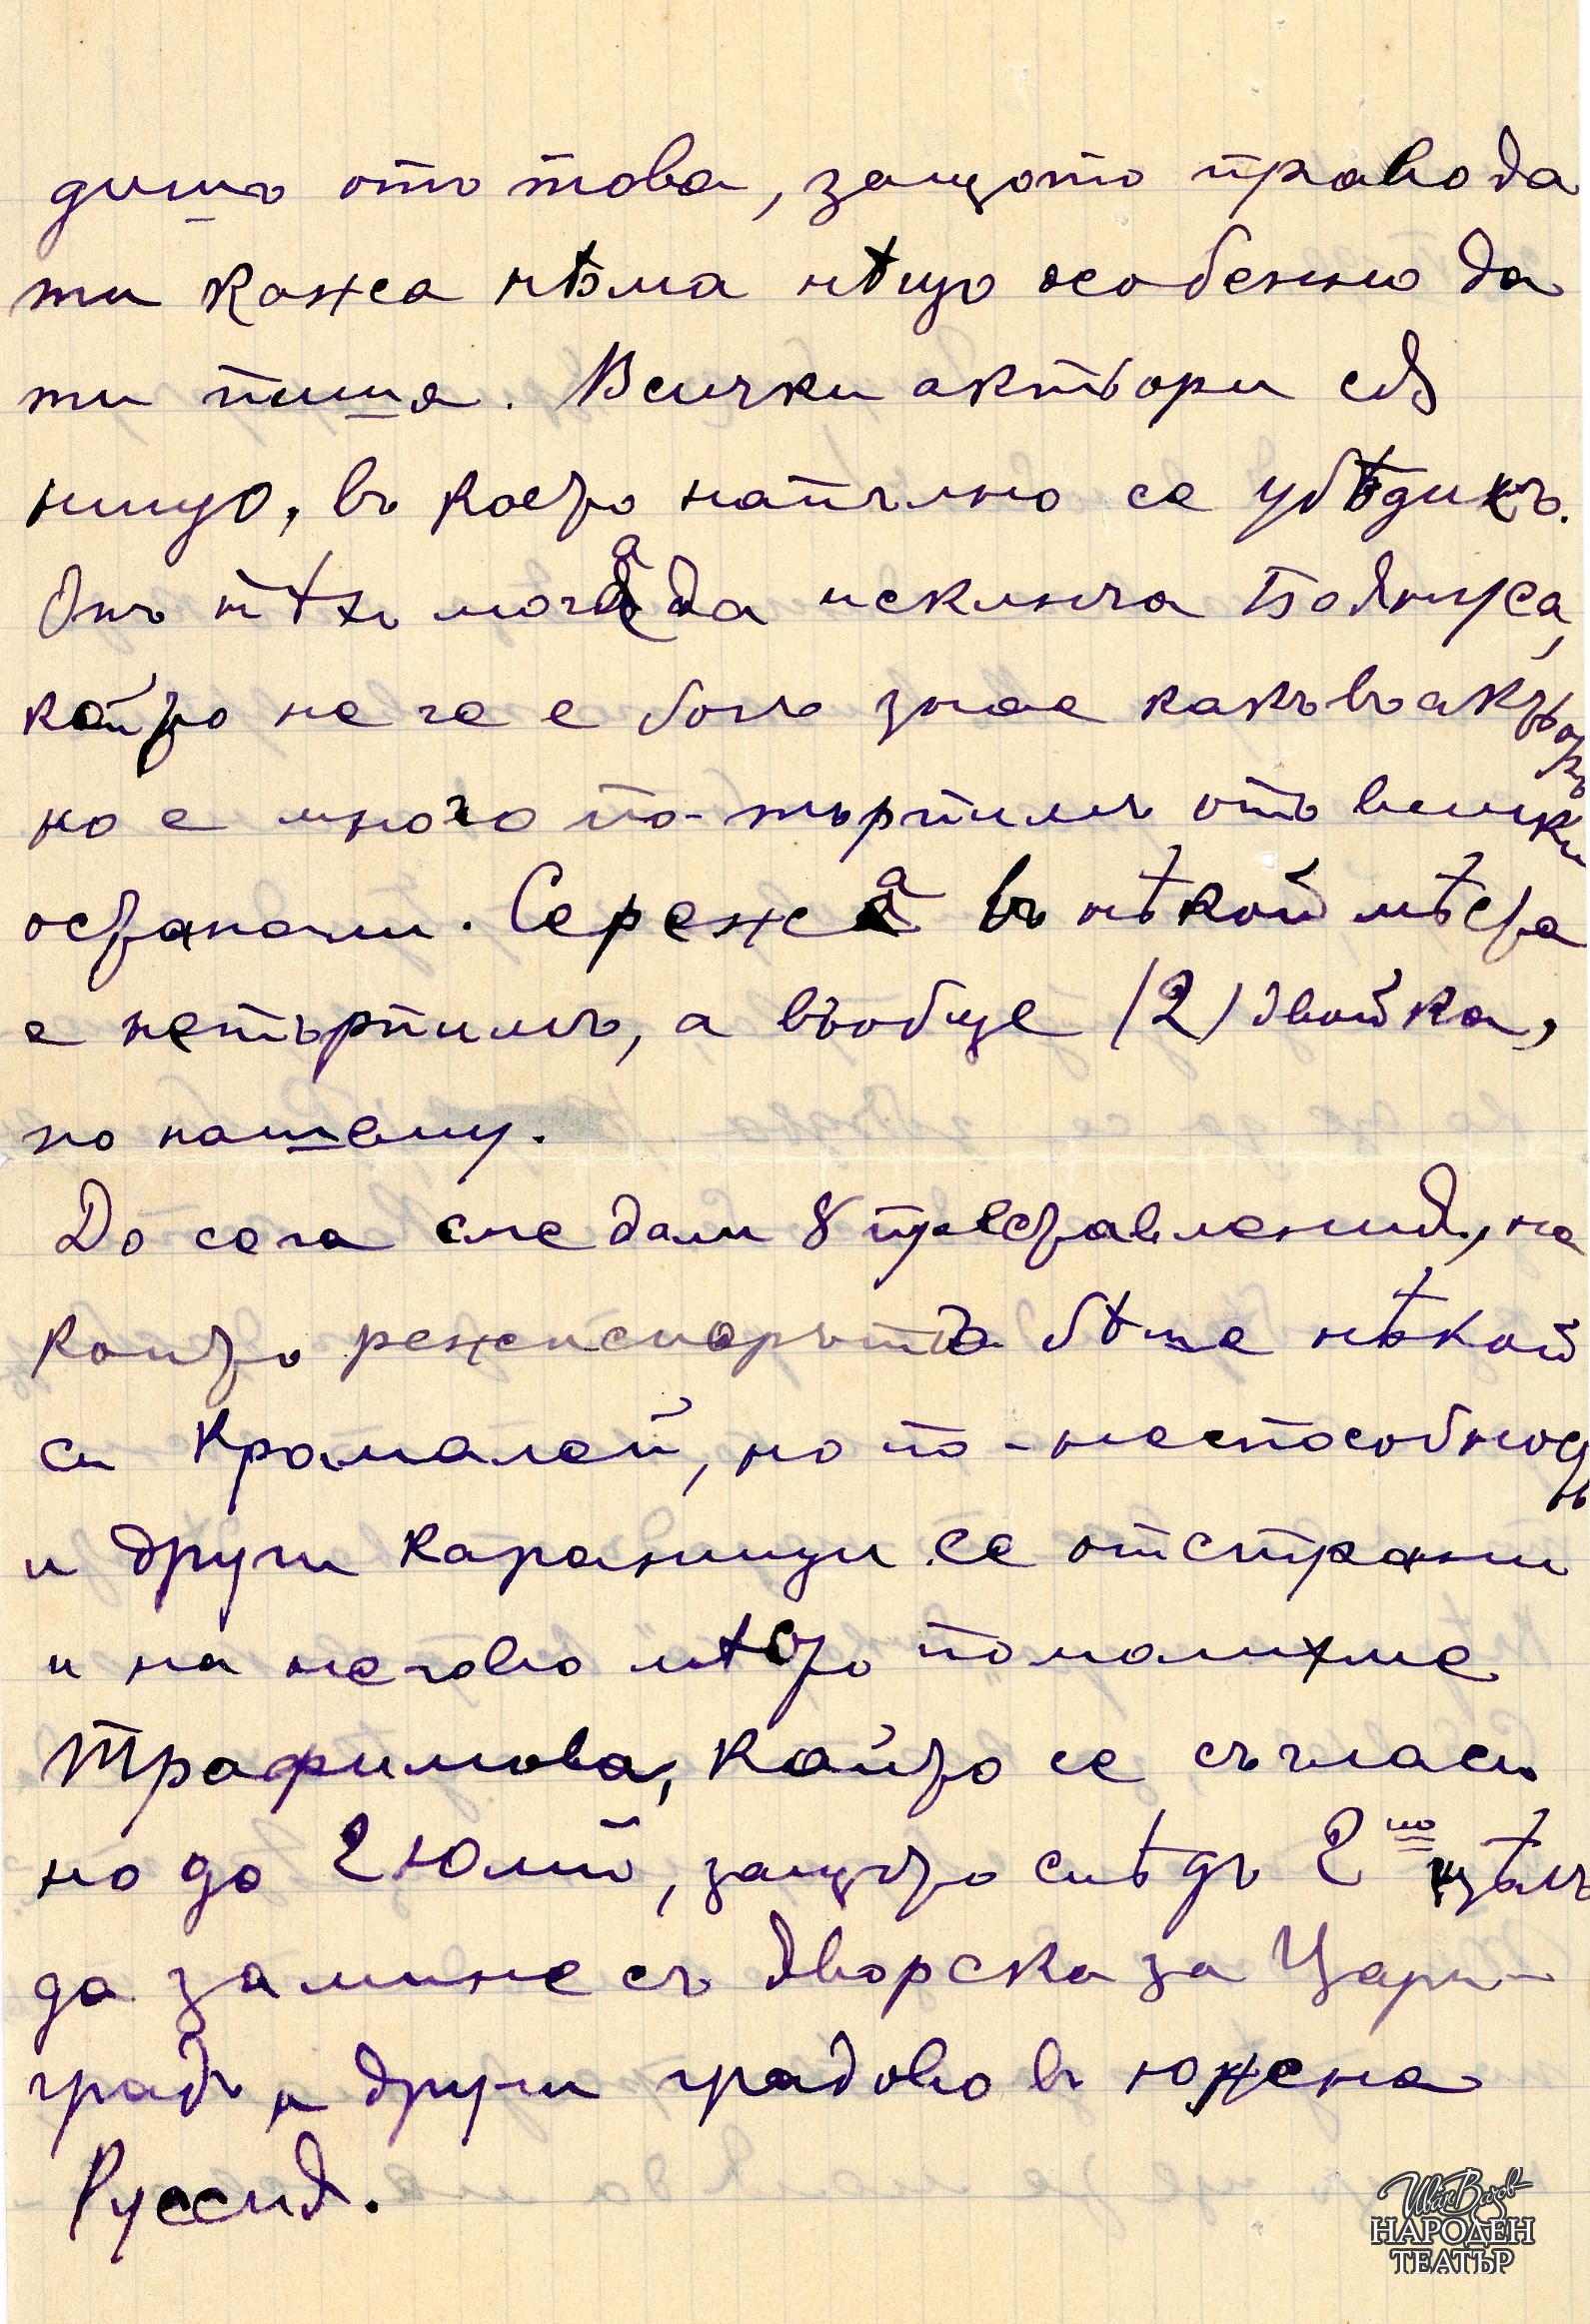 дишь отъ това, защото право да
ти кажа нѣма нѣщо особенно да
ти пиша. Всички актьори сѫ
нищо, въ което напълно се убѣдихъ.
Отъ тѣхъ мога да исключа Бояниса,
който не че е богъ знае какъвъ актьоръ
но е много по-търпимъ отъ всички
останали. Сережа въ нѣкой мѣста
е нетърпимъ, а въобще /2/ двойка,
по нашему.
До сега сме дали 8 преставления, на
които режисиорътъ бѣше нѣкой
си Крамалей, но по-неспособность
и други караници се отстрани
и на негово мѣсто помолихме
Трафимова, който се съгласи
но до 2 Юлий, защото слѣдъ 2 цѣлъ
да замине съ Дворска за Цари-
градъ и други градово въ южна
Руссия.
Иван Вазов
НАРОДЕН
ТЕАТЪР